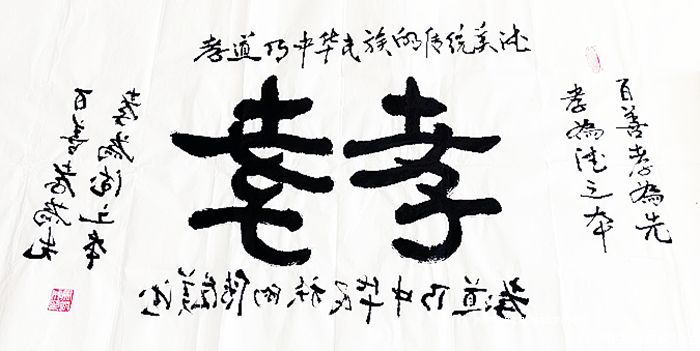 孝道乃中华民族的传统美德
百善孝為先
孝為德之本
孝
孝
孝為德之本
百善孝為先
孝道乃中华民族的传统美德